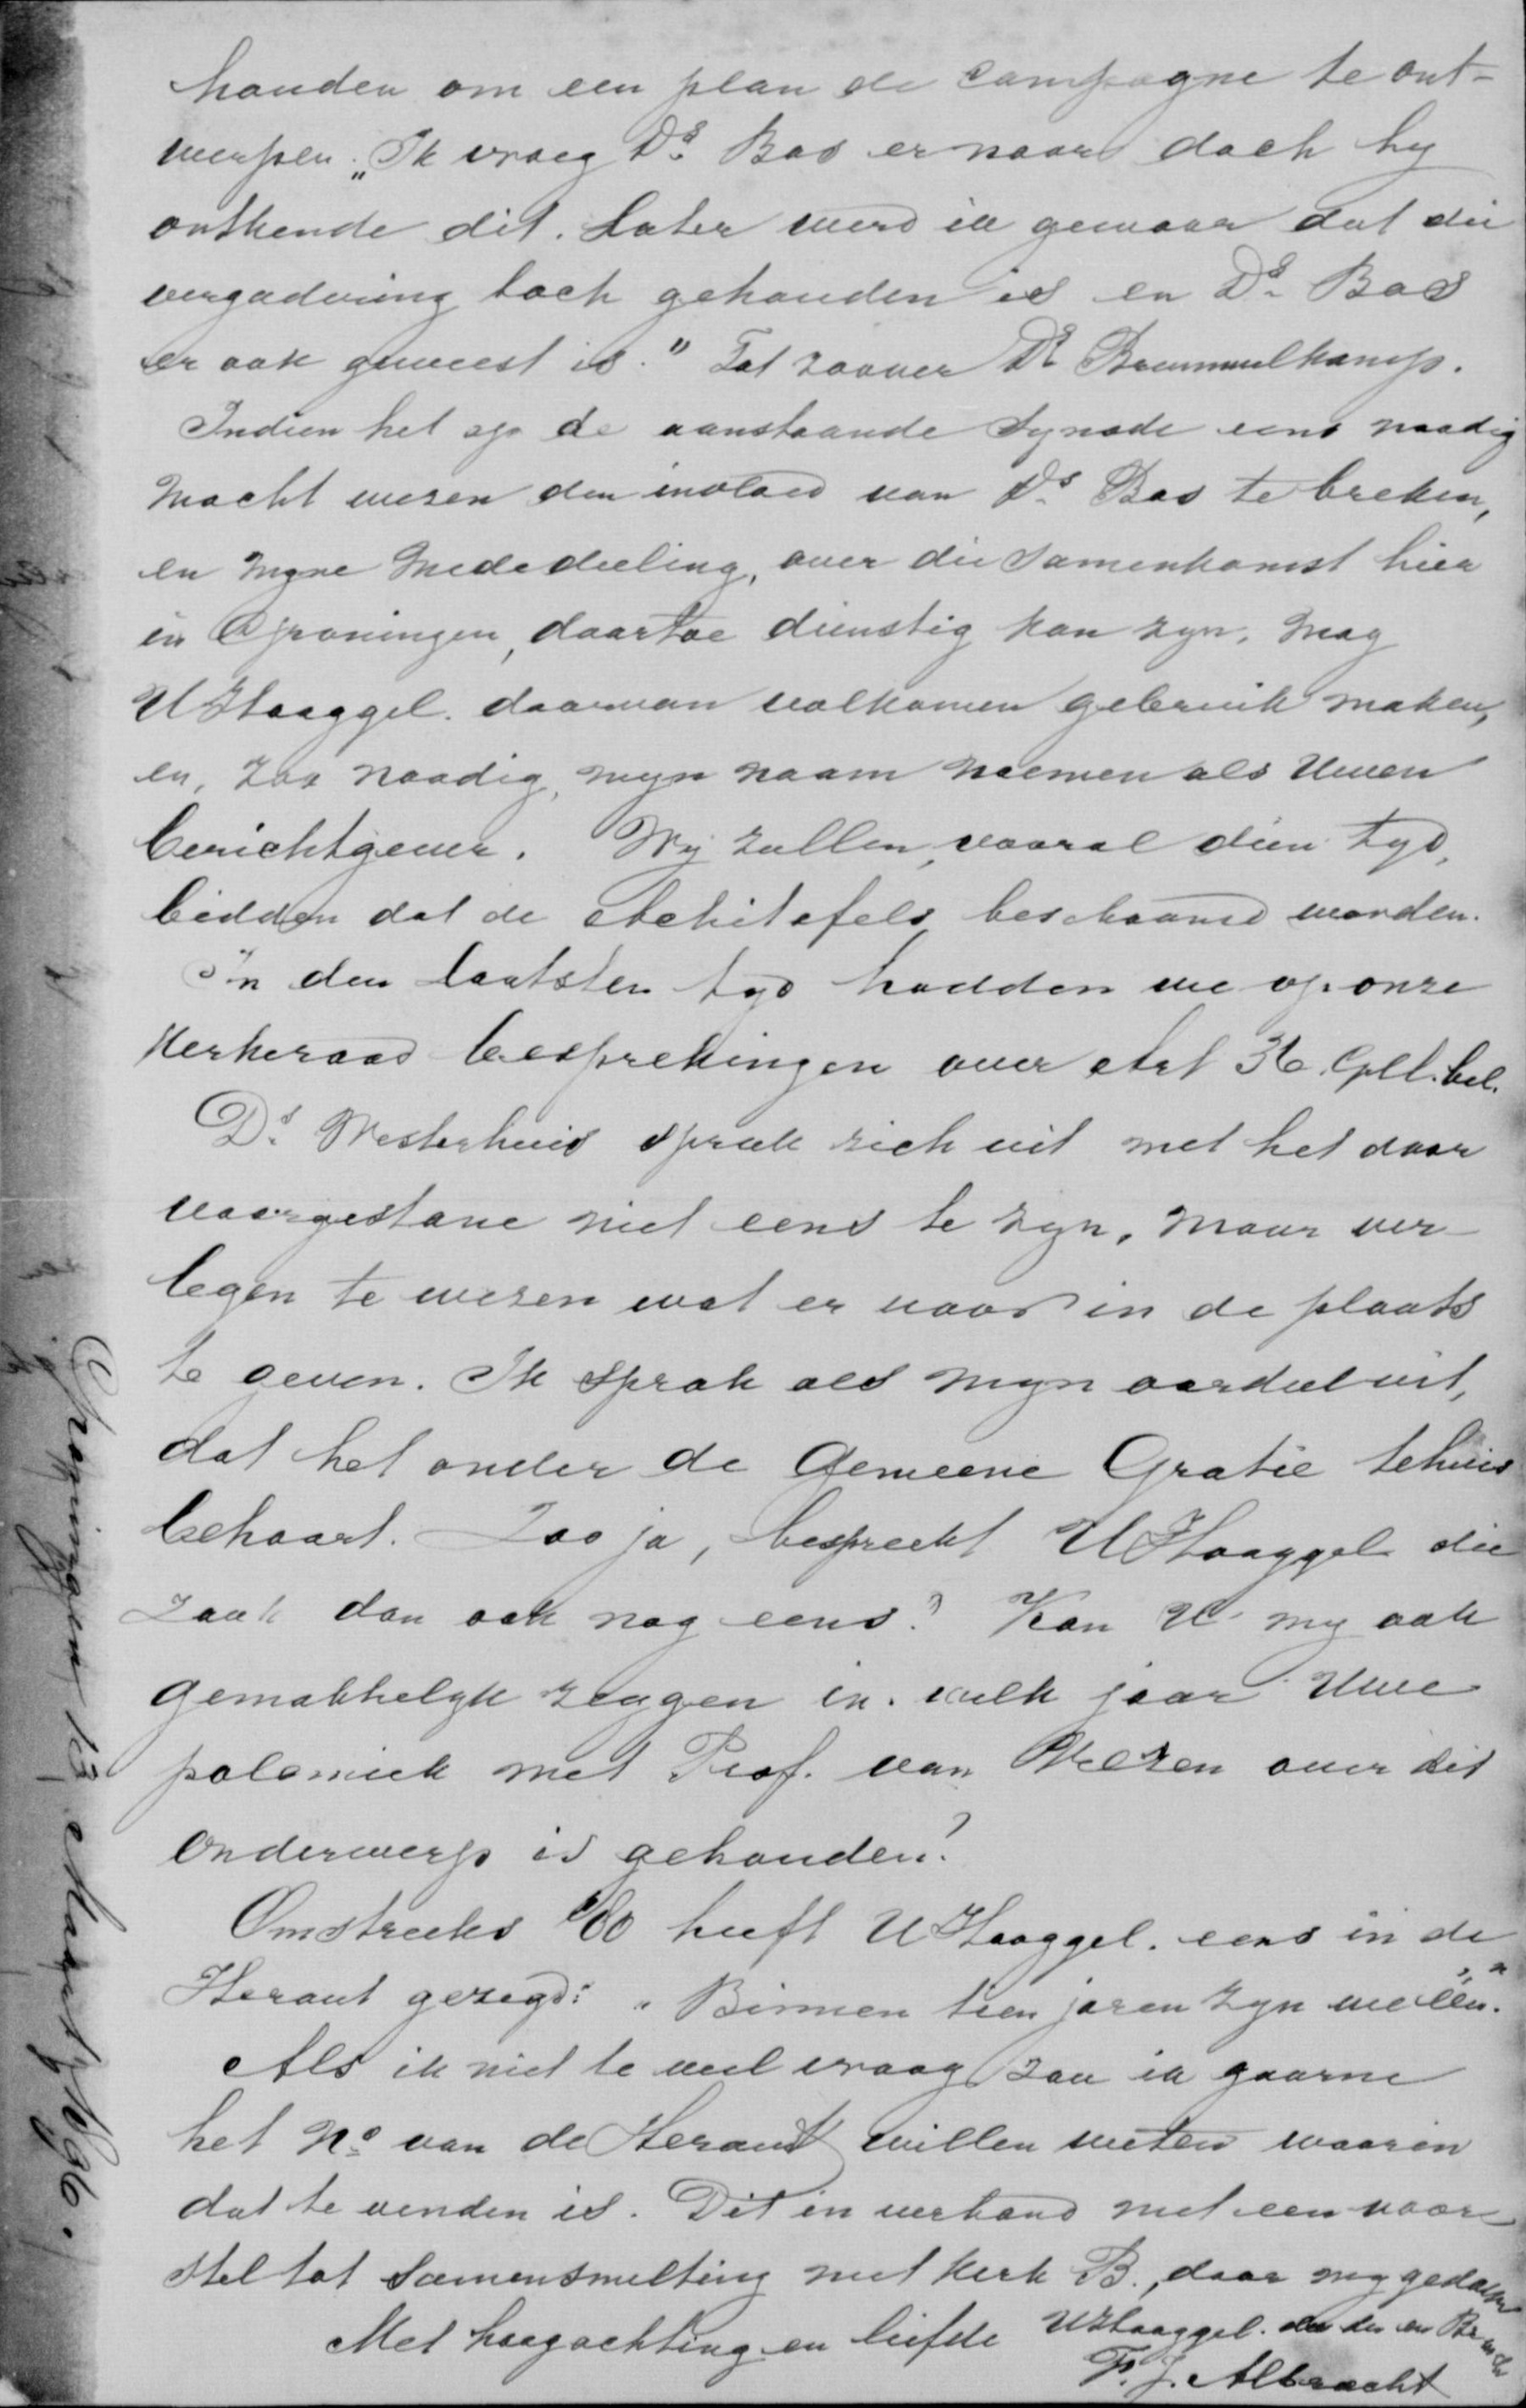 houden om een plan de campagne te ont-
werpen. „Ik vroeg Ds. Bos er naar doch hy
ontkende dit. Later werd ik gewaar dat die
vergadering toch gehouden is en Ds. Bos
er ook geweest is." Tot zoover Ds Brummelkamp.
Indien het op de aanstaande Synode eens noodig
mocht wezen den invloed van Ds. Bos te breken,
en myne mededeeling, over die samenkomst hier
in Groningen, daartoe dienstig kan zyn, mag
UHooggel. daarvan volkomen gebruik maken,
en, zoo noodig, myn naam noemen als Uwen
berichtgever. Wy zullen, vooral dien tyd,
bidden dat de Achitofels beschaamd worden.
In den laatsten tyd hadden we op onze
Kerkeraad besprekingen over Art 36 Gell. bel.
Ds. Westerhuis sprak zich uit met het daar
voorgestane niet eens te zyn, maar ver-
legen te wezen wat er voor in de plaats
te geven. Ik sprak als myn oordeel uit,
dat het onder de Gemeene Gratie tehuis
behoort. Zoo ja, bespreekt UHooggel die
zaak dan ook nog eens? Kan U my ook
gemakkelyk zeggen in welk jaar Uwe
polemiek met Prof. van Velzen over dit
onderwerp is gehouden?
Omstreeks '80 heeft UHooggel. eens in de
Heraut gezegd: „Binnen tien jaren zyn we één."
Als ik niet te veel vraag zou ik gaarne
het No van de Heraut willen weten waarin
dat te vinden is. Dit in verband met een voor-
stel tot samensmelting met Kerk B., door my gedaan
Met hoogachting en liefde UHooggel. en Br
F. J. Albracht
Groningen, 13 Maart 1896.